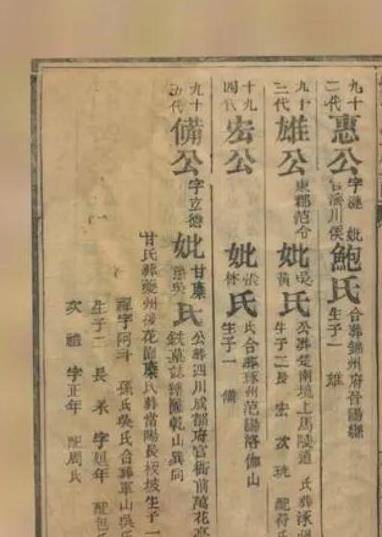 九十二代
惠公
字 妣鮑氏 合葬錦州府晉陽縣
生子一 雄
九十三代
雄公
東郡范令 妣吳氏 公葬楚南境上馬陵道 氏葬涿
黃 生子二長 宏 次 配苻氏
九十四代
宏公
妣張氏 氏合葬琢州范陽洛伽山
林 生子一 備
九十五代
備公
字立德 妣甘糜氏 公葬四川成都府官衙前萬花
孫吳
甘氏葬夔州後花園糜氏葬當陽長板坡生子一
禪字阿斗 孫氏吳氏合葬軍山吳氏
生子二 長 承 字延年 配包氏
次 禮 字正年 配周氏